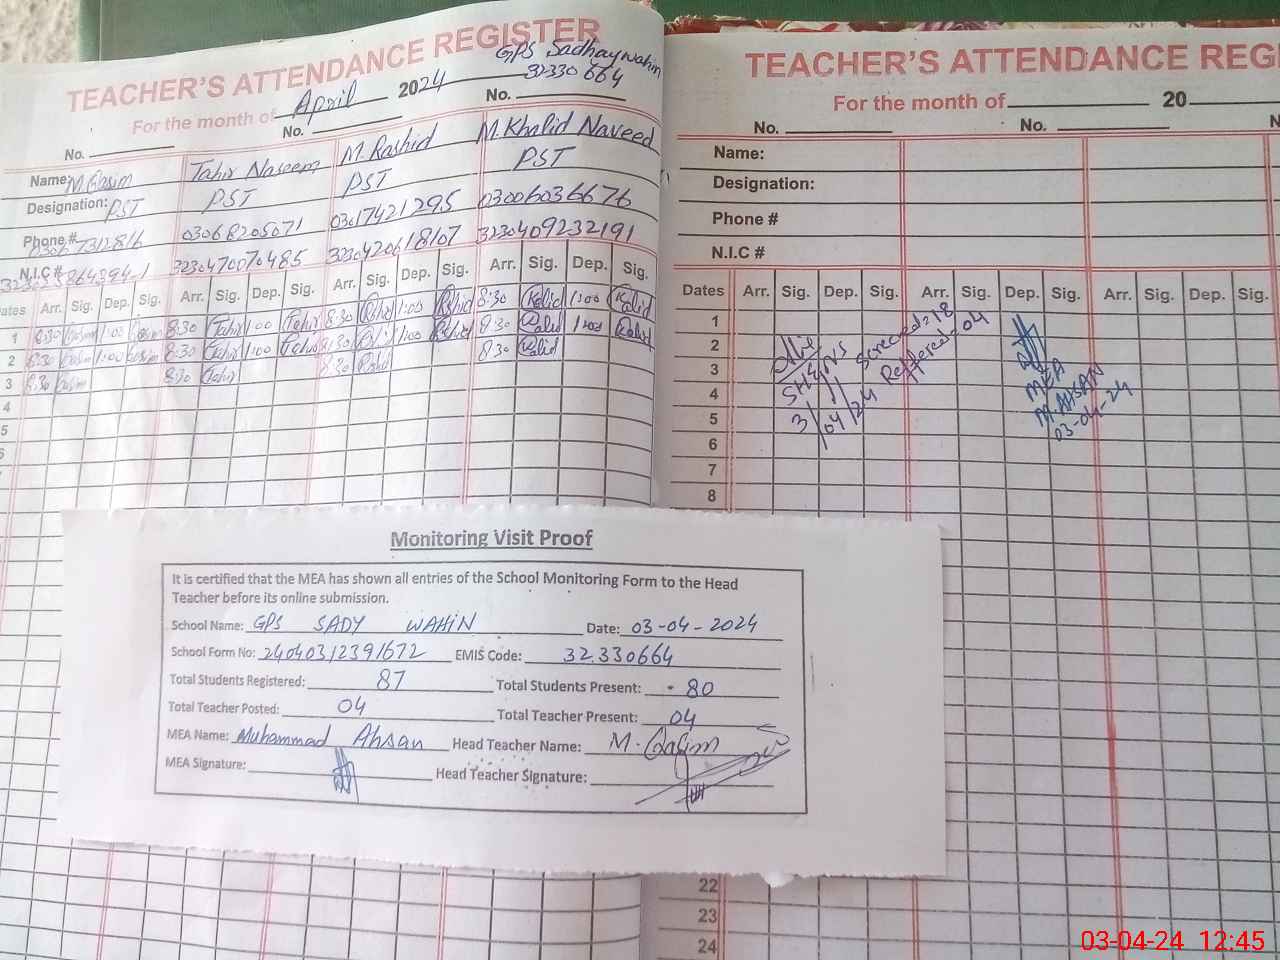 TEACHER'S ATTENDANCE REGISTER
GPS Sadhaywahin
32330664
For the month of April 2024
No. No. No.
Name: M. Qasim Tahir Naseem M. Rashid M. Khalid Naveed
Designation: PST PST PST PST
Phone # 7312816 03068205071 03017421295 03006036676
N.I.C # 3230470070485 3230420618107 3230409232191
Dates Arr. Sig. Dep. Sig. Arr. Sig. Dep. Sig. Arr. Sig. Dep. Sig. Arr. Sig. Dep. Sig.
1 8:30 Qasim 1:00 Qasim 8:30 Tahir 1:00 Tahir 8:30 Rshid 1:00 Rshid 8:30 Kalid 1:00 Kalid
2 8:30 Qasim 1:00 Qasim 8:30 Tahir 1:00 Tahir 8:30 Rshid 1:00 Rshid 8:30 Kalid 1:00 Kalid
3 8:30 Qasim 8:30 Tahir 8:30 Rshid 8:30 Kalid
4
5
6
7
TEACHER'S ATTENDANCE REGI
For the month of 20
No. No. N
Name:
Designation:
Phone #
N.I.C #
Dates Arr. Sig. Dep. Sig. Arr. Sig. Dep. Sig. Arr. Sig. Dep. Sig.
1
2
3
4
5
6
7
8
SH&NS
3/04/24
Screened=18
Reffered=04
MEA
M. AHSAN
03-04-24
Monitoring Visit Proof
It is certified that the MEA has shown all entries of the School Monitoring Form to the Head
Teacher before its online submission.
School Name: GPS SADY WAHIN Date: 03-04-2024
School Form No: 24040312391672 EMIS Code: 32330664
Total Students Registered: 87 Total Students Present: 80
Total Teacher Posted: 04 Total Teacher Present: 04
MEA Name: Muhammad Ahsan Head Teacher Name: M. Qasim
MEA Signature: Head Teacher Signature:
22
23
24
03-04-24 12:45